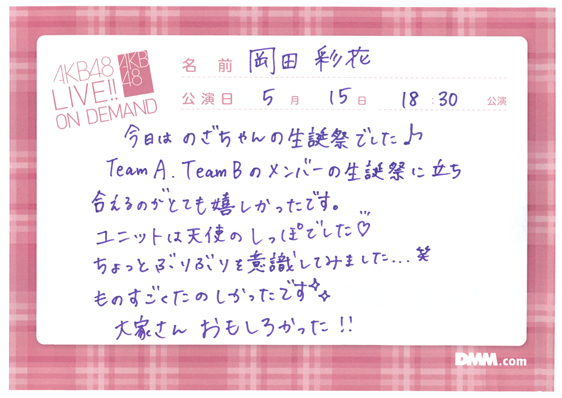 AKB48
LIVE!!
ON DEMAND
AKB
48
名前 岡田彩花
公演日 5月 15日 18:30 公演
今日は のざちゃんの生誕祭でした♪
Team A. Team Bのメンバーの生誕祭に立ち
合えるのがとても嬉しかったです。
ユニットは天使のしっぽでした♡
ちょっとぶりぶりを意識してみました...笑
ものすごくたのしかったです
大家さん おもしろかった!!
DMM.com